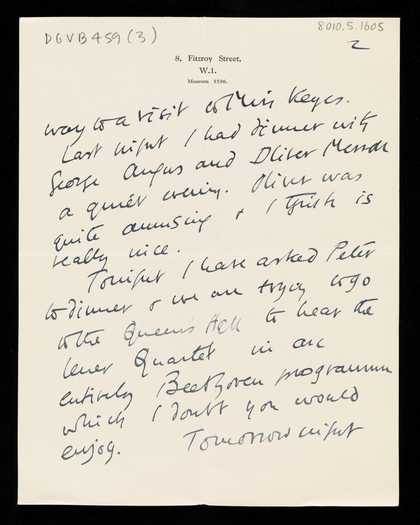 DGVB459(3)
8010.5.1605
2
8, Fitzroy Street,
W.1.
Museum 1596.
way to a visit to Miss Keyes.
Last night I had dinner with
George Angus and Oliver Messel
a quiet evening. Oliver was
quite amusing & I think is
really nice.
Tonight I have asked Peter
to dinner & we are trying to go
to the Queen's Hall to hear the
Lener Quartet in an
entirely Beethoven programme
which I doubt you would
enjoy. Tomorrow night